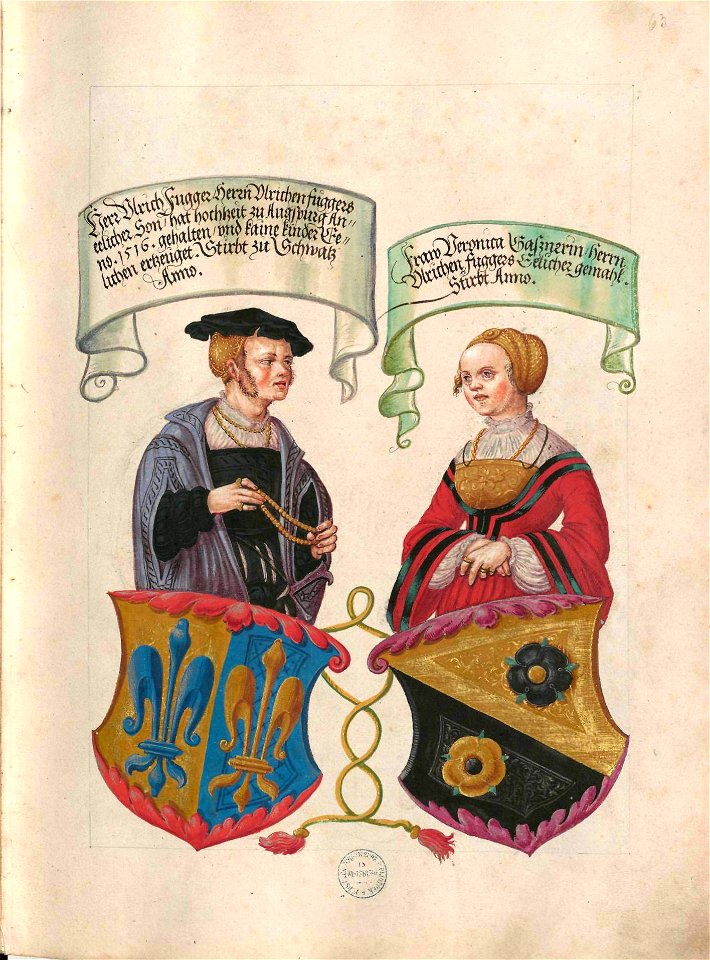 63
Herr Ulrich Fugger Herrn Ulrichen fuggers
eelicher Son, hat hochzeit zu Augspurg An-
no. 1516. gehalten, vnd kaine kinder Ee-
lichen erzeuget. Stirbt zu Schwatz
Anno.
Fraw Veronica Gaßnerin Herrn
Ulrichen fuggers Eelicher gemahl.
Stirbt Anno.